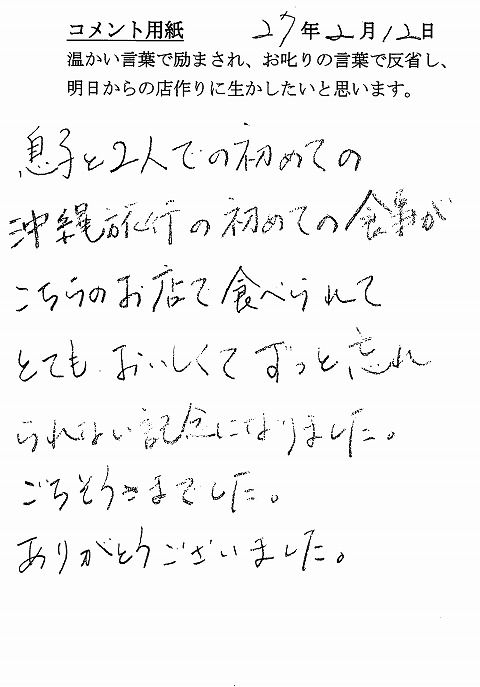 コメント用紙 27年2月12日
温かい言葉で励まされ、お叱りの言葉で反省し、
明日からの店作りに生かしたいと思います。
息子と2人での初めての
沖縄旅行の初めての食事が
こちらのお店で食べられて
とてもおいしくてずっと忘れ
られない記念になりました。
ごちそうさまでした。
ありがとうございました。